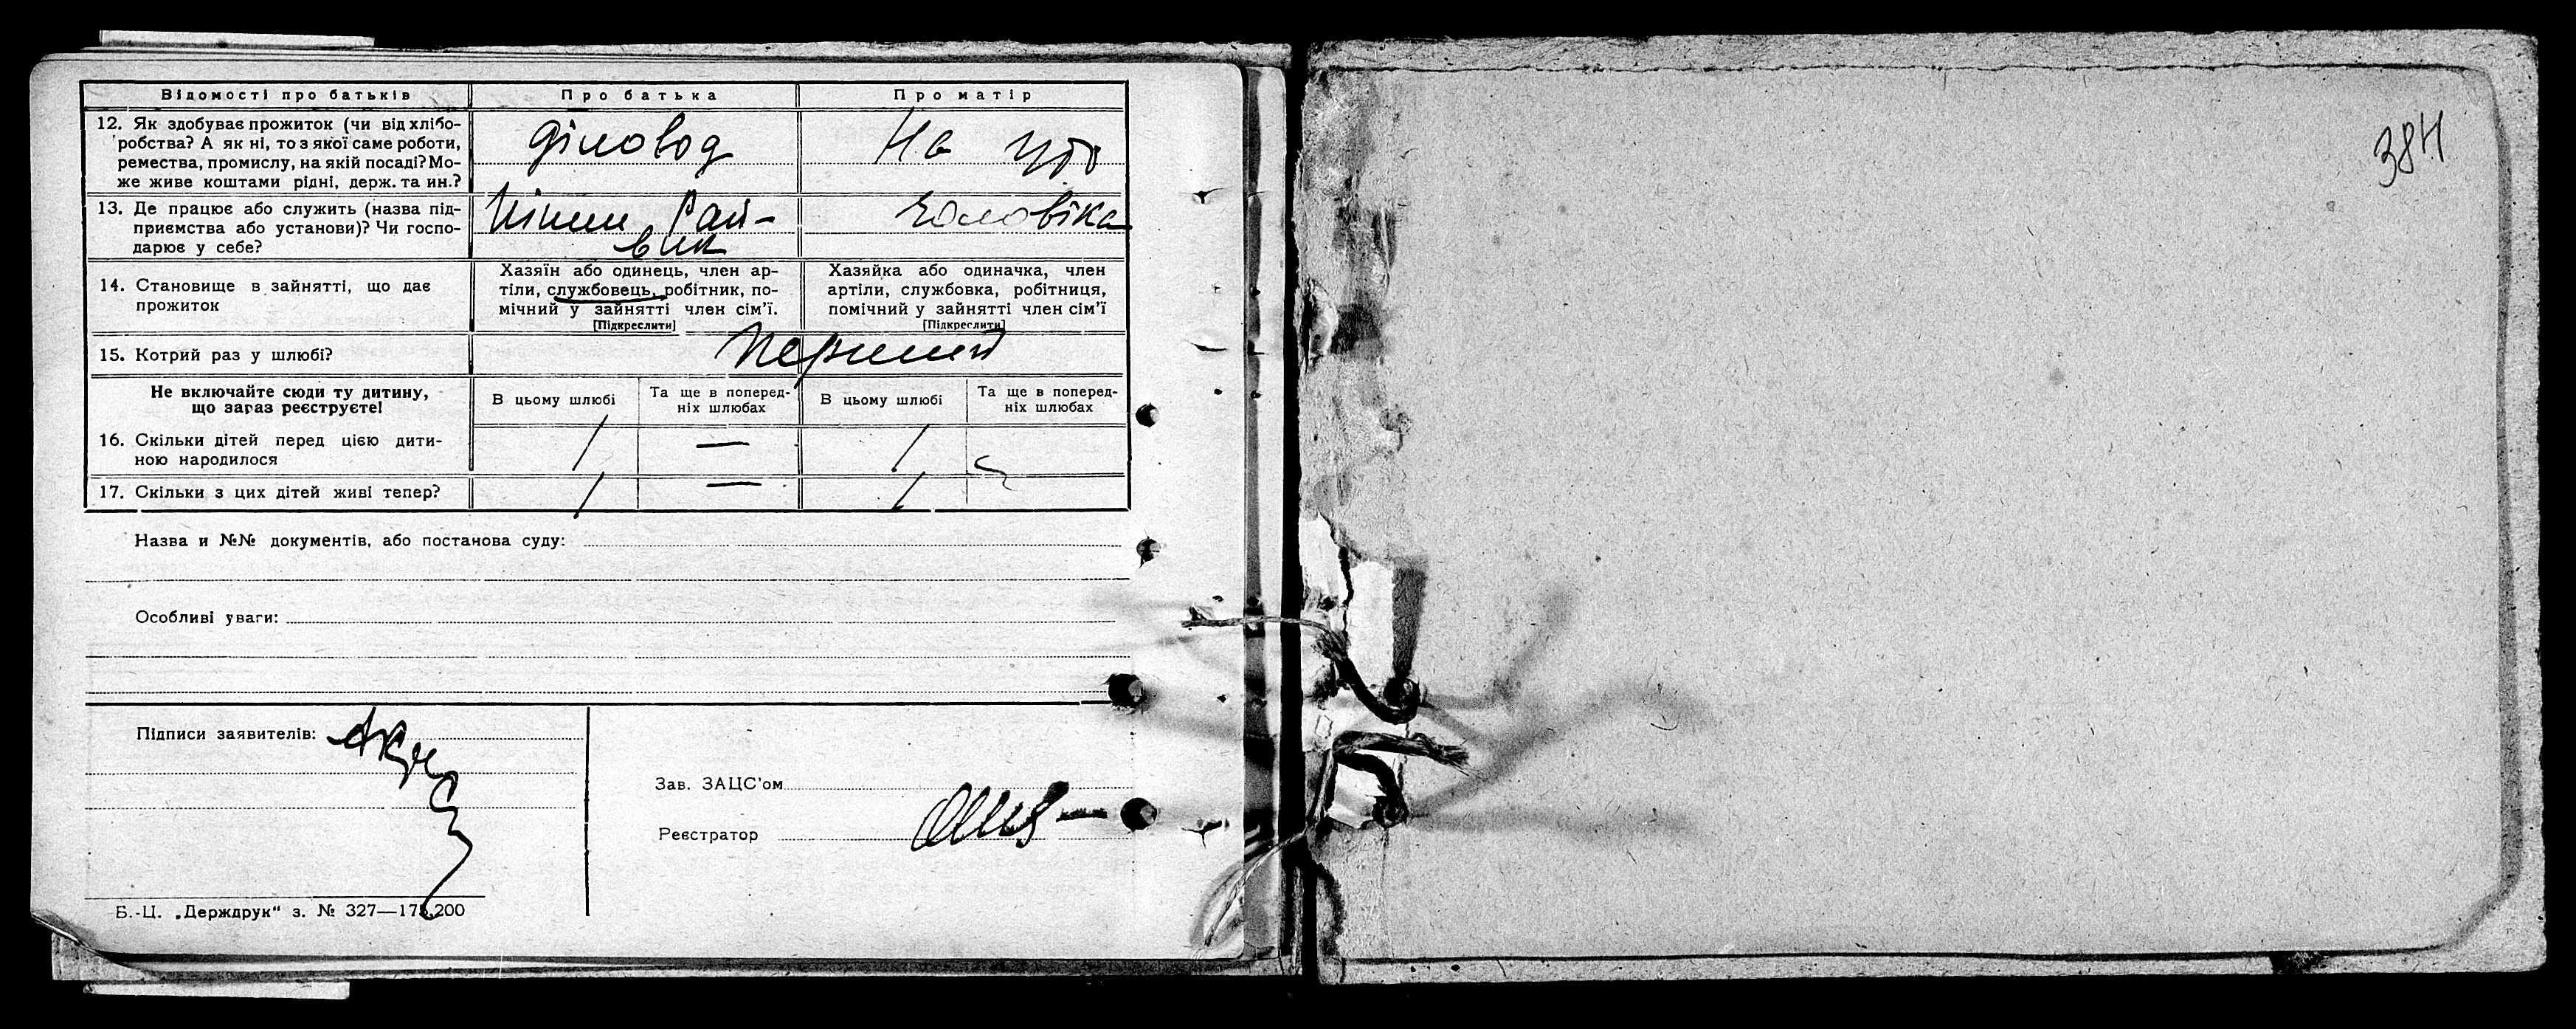 Відомості про батьків
Про батька
Про матір
12. Як здобуває прожиток (чи від хлібо-
робства? А як ні, то з якої саме роботи,
ремества, промислу, на якій посаді? Мо-
же живе коштами рідні, держ. та ин.?
діловод
На утр
13. Де працює або служить (назва під-
приємства або установи)? Чи госпо-
дарює у себе?
Рай-
вик
чоловіка
14. Становище в зайнятті, що дає
прожиток
Хазяїн або одинець, член ар-
тіли, службовець, робітник, по-
мічний у зайнятті член сім'ї.
[Підкреслити]
Хазяйка або одиначка, член
артіли, службовка, робітниця,
помічний у зайнятті член сім'ї
[Підкреслити]
15. Котрий раз у шлюбі?
перший
Не включайте сюди ту дитину,
що зараз реєструєте!
В цьому шлюбі
Та ще в поперед-
ніх шлюбах
В цьому шлюбі
Та ще в поперед-
ніх шлюбах
16. Скільки дітей перед цією дити-
ною народилося
1 — 1
17. Скільки з цих дітей живі тепер?
1 — 1
Назва и №№ документів, або постанова суду:
Особливі уваги:
Підписи заявителів:
Зав. ЗАЦС'ом
Реєстратор
Б.-Ц. „Держдрук" з. № 327—175.200
384